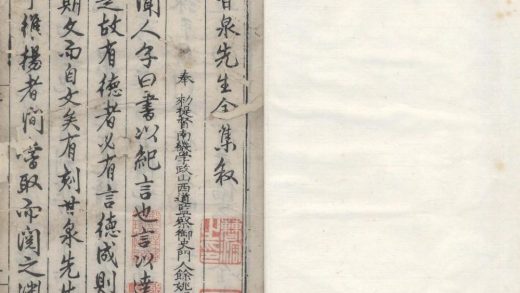 泉先生全集叙
奉 勑提督南畿學政山西道監察御史門人餘姚
聞人子曰書以紀言也言以達
故有德者必有言德成則
期文而自文矣有刻甘泉先生
維揚者間嘗取而閱之